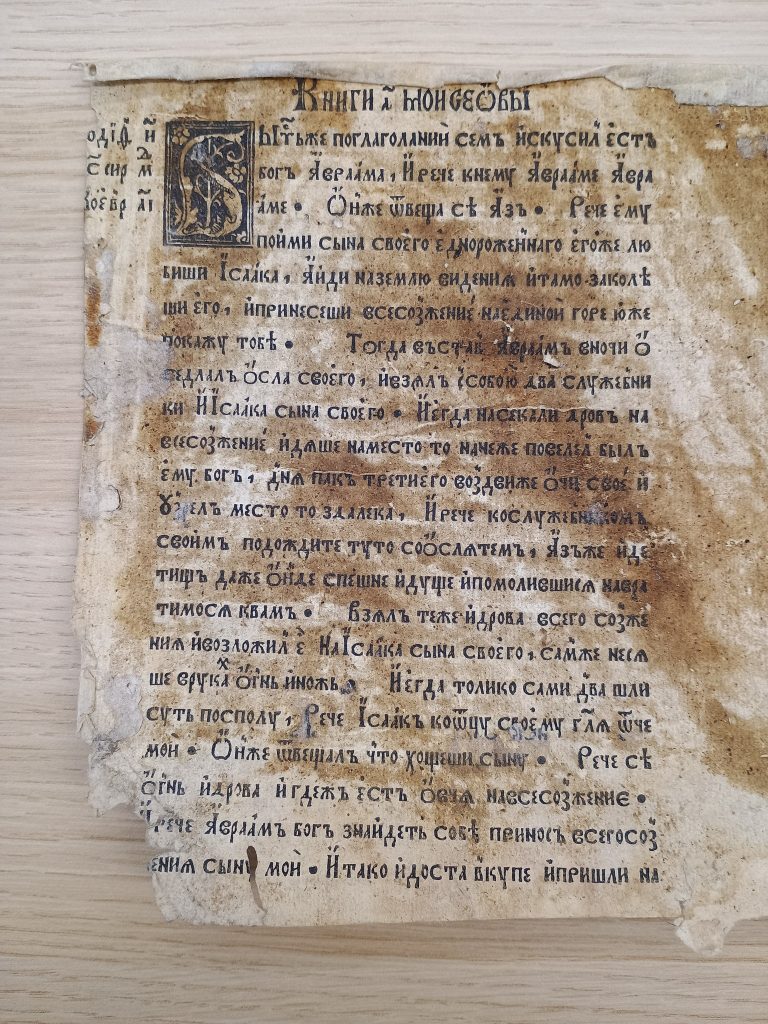 Книги а҃ моисеѡвы
Быстьже поглаголании семъ искусил естъ
богъ Авраама, И рече кнему Аврааме Авра
аме • Ѻнже ѿвеща сѣ Азъ • Рече ему
поими сына своего единороженнаго егоже лю
биши Исаака, Аиди наземлю видения итамо заколѣ
ши его, ипринесеши всесозжение наединои горе юже
покажу тобѣ • Тогда въстав Авраамъ вночи ѻ
седлалъ ѻсла своего, ивзялъ ссобою два служебни
ки И Исаака сына своего • Иегда насекали дровъ на
всесозжение идяше наместо то начеже повелел былъ
ему богъ, дня пакъ третиего воздвиже ѻчи свое и
узрелъ место то здалека, И рече кослужебникомъ
своимъ подождите туто соѻслятемъ, Азъже иде
тищъ даже ѻнде спешне идуще ипомолившися навра
тимося квамъ • Взялъ тежеидрова всего созже
ния ивозложил е НаИсаака сына своего, самже неся
ше врукахъ ѻгнь иножь, Иегда толико сами два шли
суть посполу, Рече Исаакъ коѿцу своему гля ѿче
мои • Ѻнже ѿвещалъ что хощеши сыну • Рече сѣ
ѻгнь идрова и гдежъ естъ ѻвчя навсесозжение •
Ирече Авраамъ богъ знайдеть собѣ приносъ всегосоз
ения сыну мои • И тако идоста вкупе ипришли на